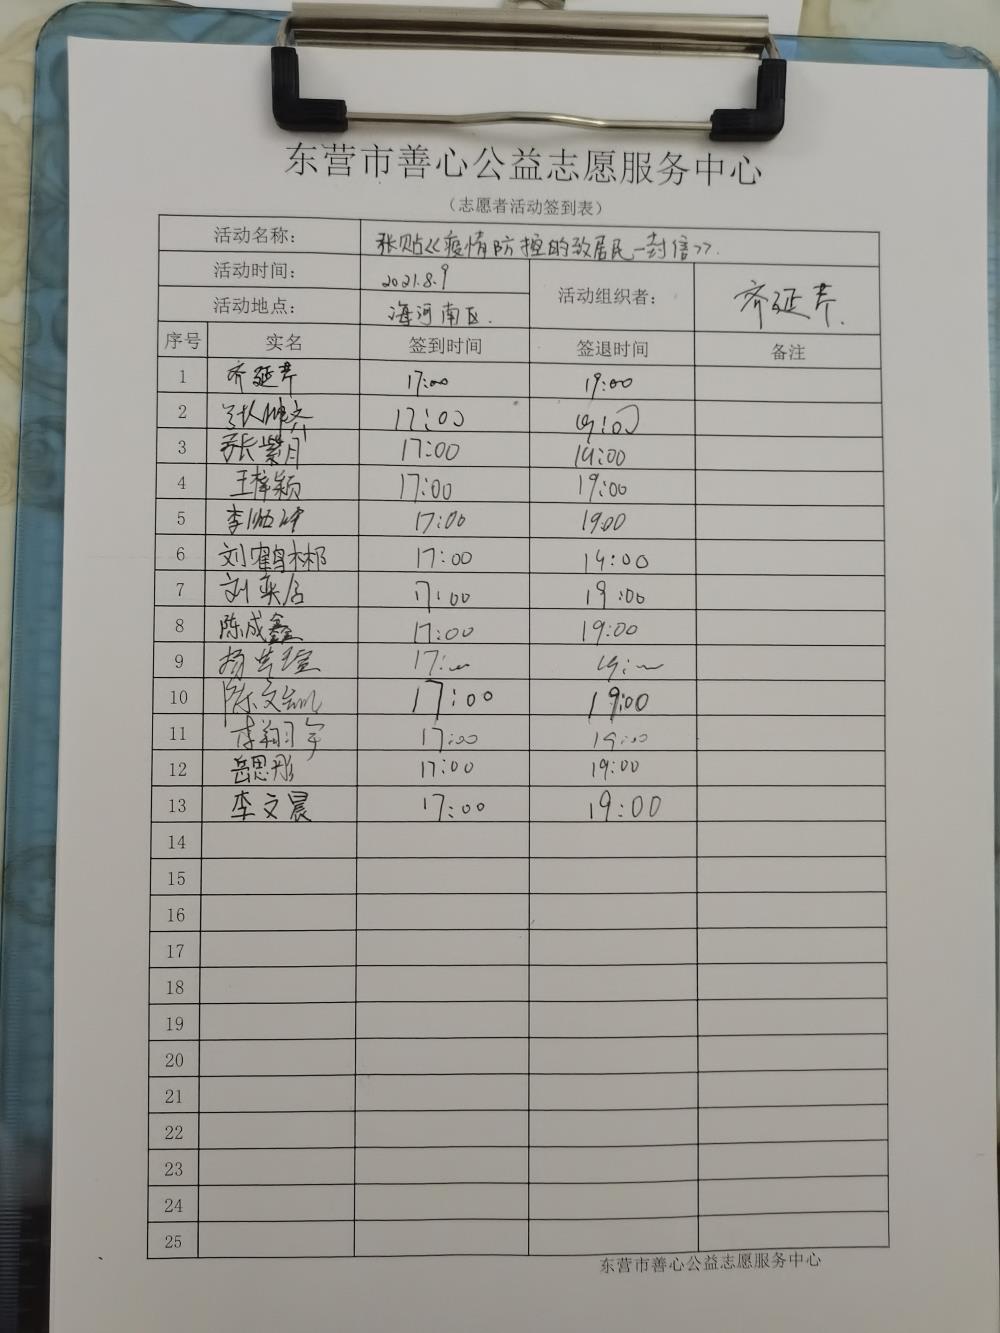 东营市善心公益志愿服务中心
（志愿者活动签到表）
活动名称： 张贴《疫情防控的致居民一封信》.
活动时间： 2021.8.9 活动组织者： 齐延芹.
活动地点： 海河南区.
序号 实名 签到时间 签退时间 备注
1 齐延芹 17:00 19:00
2 17:00 19:00
3 张紫月 17:00 19:00
4 王梓颖 17:00 19:00
5 李 17:00 19:00
6 刘鹤彬 17:00 19:00
7 刘奕 17:00 19:00
8 陈成鑫 17:00 19:00
9 杨 17: 19:
10 陈文凯 17:00 19:00
11 李翔宇 17:00 19:00
12 岳思彤 17:00 19:00
13 李文晨 17:00 19:00
14
15
16
17
18
19
20
21
22
23
24
25
东营市善心公益志愿服务中心